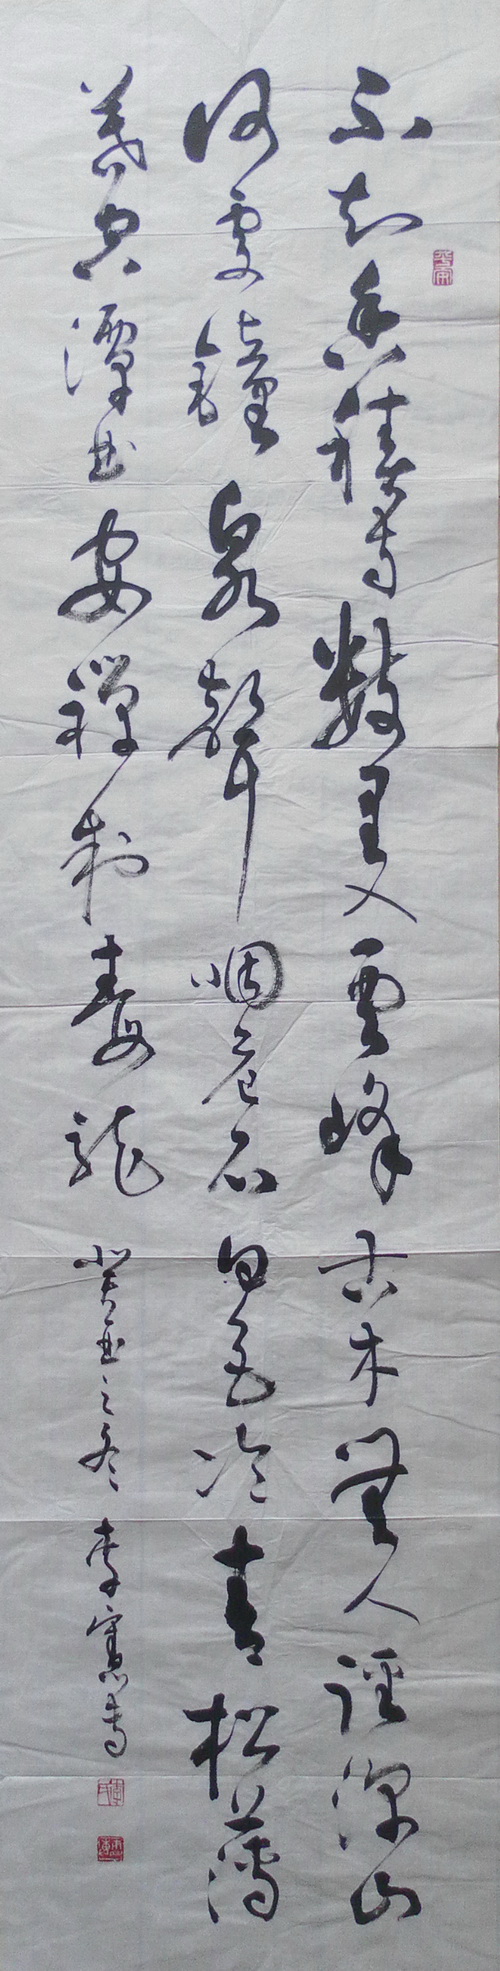 不知香積寺數里入雲峰古木無人徑深山
何處鐘泉聲咽危石日色冷青松薄
暮空潭曲安禪制毒龍 癸之冬 李憲